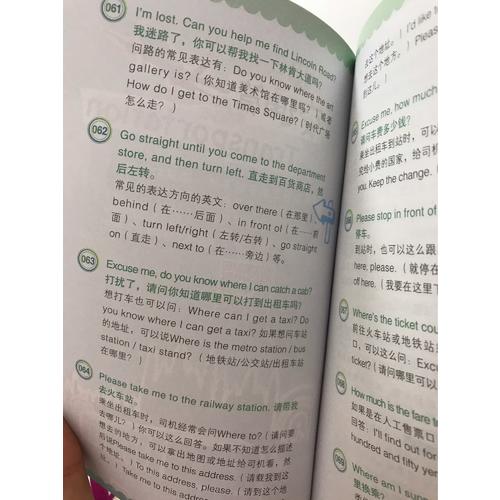 061
I'm lost. Can you help me find Lincoln Road?
我迷路了，你可以帮我找一下林肯大道吗？
问路的常见表达有：Do you know where the art
gallery is?（你知道美术馆在哪里吗？）或者
How do I get to the Times Square?（时代广场
怎么走？）
062
Go straight until you come to the department
store, and then turn left. 直走到百货商店，然
后左转。
常见的表达方向的英文：over there（在那里）、
behind（在……后面）、in front of（在……前
面）、turn left/right（左转/右转）、go straight
on（直走）、next to（在……旁边）等。
063
Excuse me, do you know where I can catch a cab?
打扰了，请问你知道哪里可以打到出租车吗？
想打车也可以问：Where can I get a taxi? Do
you know where I can get a taxi? 如果想问车站
的地址，可以说Where is the metro station / bus
station / taxi stand?（地铁站/公交站/出租车站
在哪里？）
064
Please take me to the railway station. 请带我
去火车站。
乘坐出租车时，司机经常会问Where to?（请问要
去哪儿？）你可以这么回答。如果不知道怎么描述
想去的地方，可以拿出地图或地址给司机看，然
后讲Please take me to this address.（请载我到这
个地址。）To this address, please.（请到这个地
址。）Take me to this address
去这个地址。）I'd like to
想去这个地方。）Please
到这儿。）
Excuse me, how much
请问车费多少钱？
乘坐出租车到站时，可以
兑给小费的国家，给司机
you. Keep the change.
Please stop in front of
停车。
到站时，也可以这么跟
here, please.（就停在
off here.（我要在这里下
067
Where's the ticket cou
前往火车站或地铁站
口，可以这么问：Exc
tickets?（请问哪里可以
068
How much is the fare t
如果是在人工售票口
回答：I'll find out for
hundred and fifty yen
069
Where am I su
里换乘？